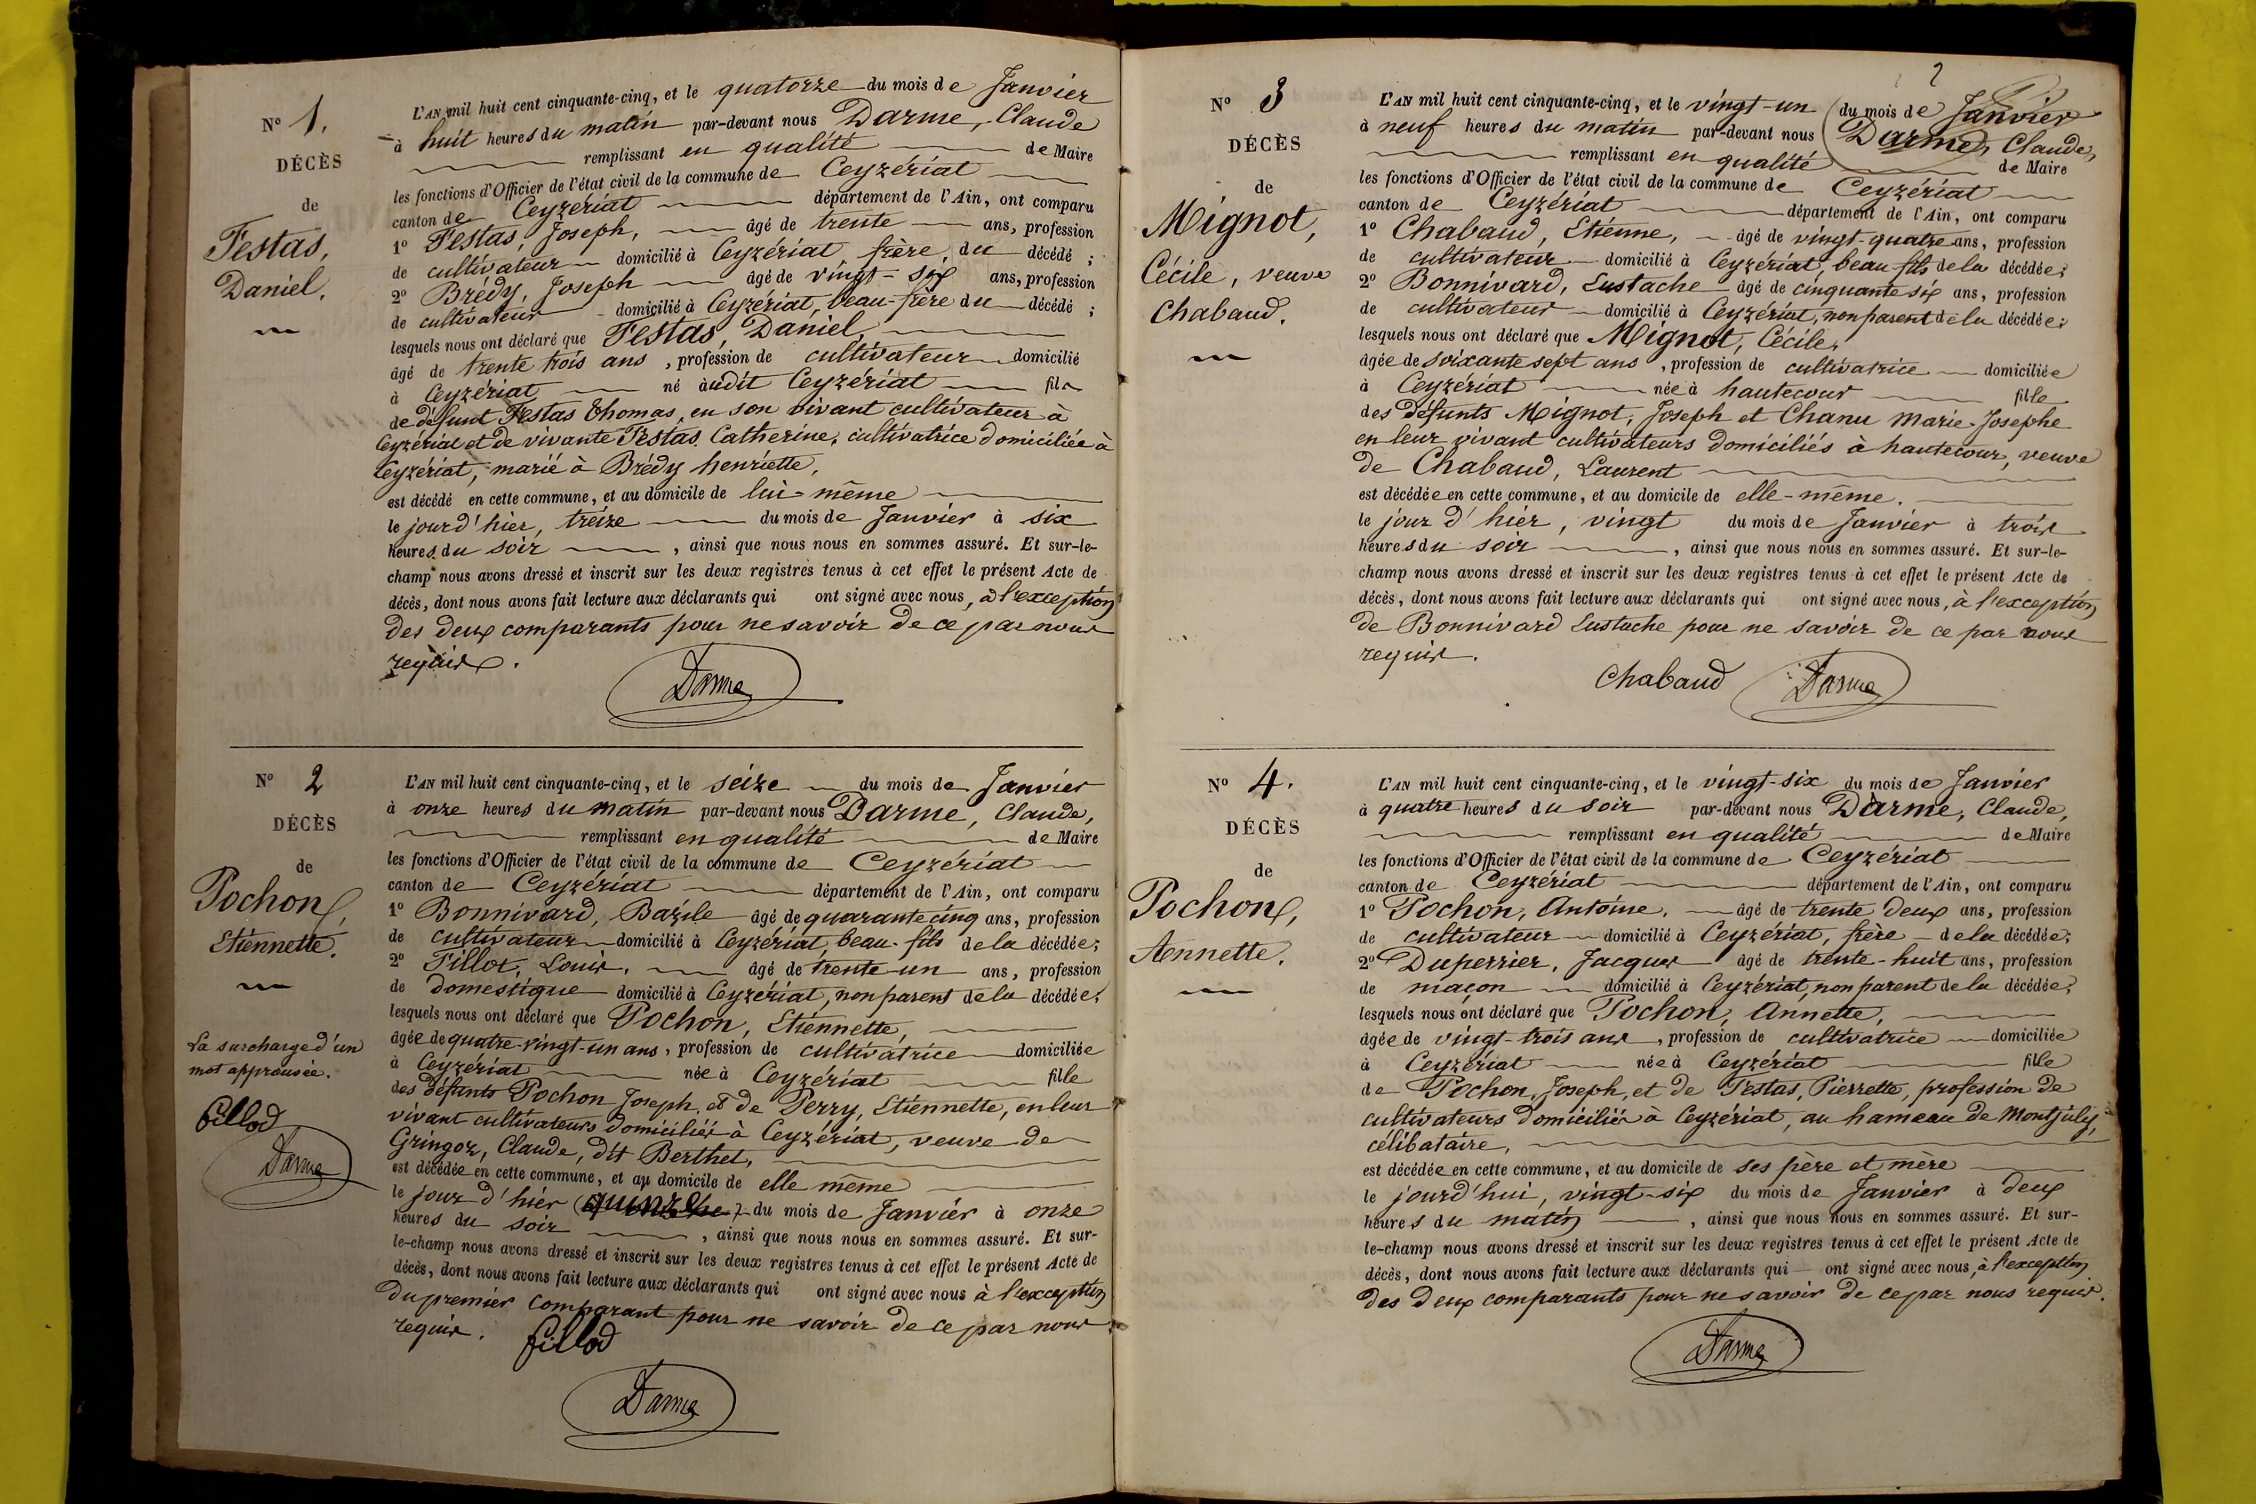 N° 1.
DÉCÈS
de
Testas,
Daniel.
L'AN mil huit cent cinquante-cinq, et le quatorze du mois de Janvier
à huit heures du matin par-devant nous Darme, Claude
remplissant en qualité de Maire
les fonctions d'Officier de l'état civil de la commune de Ceyzériat
canton de Ceyzériat département de l'Ain, ont comparu
1° Testas, Joseph, âgé de trente ans, profession
de cultivateur domicilié à Ceyzériat, frère du décédé ;
2° Brédy, Joseph âgé de vingt-six ans, profession
de cultivateur domicilié à Ceyzériat, beau-frère du décédé ;
lesquels nous ont déclaré que Testas, Daniel,
âgé de trente trois ans, profession de cultivateur domicilié
à Ceyzériat né audit Ceyzériat fils
de défunt Testas Thomas, en son vivant cultivateur à
Ceyzériat et de vivante Testas Catherine, cultivatrice domiciliée à
Ceyzériat, marié à Brédy henriette,
est décédé en cette commune, et au domicile de lui-même
le jour d'hier, treize du mois de Janvier à six
heures du soir, ainsi que nous nous en sommes assuré. Et sur-le-
champ nous avons dressé et inscrit sur les deux registres tenus à cet effet le présent Acte de
décès, dont nous avons fait lecture aux déclarants qui ont signé avec nous, à l'exception
des deux comparants pour ne savoir de ce par nous
requis.
Darme
N° 2
DÉCÈS
de
Pochon,
Etiennette.
La surcharge d'un
mot approuvée.
fillod
Darme
L'AN mil huit cent cinquante-cinq, et le seize du mois de Janvier
à onze heures du matin par-devant nous Darme, Claude,
remplissant en qualité de Maire
les fonctions d'Officier de l'état civil de la commune de Ceyzériat
canton de Ceyzériat département de l'Ain, ont comparu
1° Bonnivard, Bazile âgé de quarante cinq ans, profession
de cultivateur domicilié à Ceyzériat, beau-fils de la décédée ;
2° Fillot, Louis, âgé de trente-un ans, profession
de domestique domicilié à Ceyzériat, non parent de la décédée ;
lesquels nous ont déclaré que Pochon, Etiennette,
âgée de quatre-vingt-un ans, profession de cultivatrice domiciliée
à Ceyzériat née à Ceyzériat fille
des défunts Pochon Joseph, et de Perry, Etiennette, en leur
vivant cultivateurs domiciliés à Ceyzériat, veuve de
Gringoz, Claude, dit Berthet,
est décédée en cette commune, et au domicile de elle même
le jour d'hier (quinze) du mois de Janvier à onze
heures du soir, ainsi que nous nous en sommes assuré. Et sur-
le-champ nous avons dressé et inscrit sur les deux registres tenus à cet effet le présent Acte de
décès, dont nous avons fait lecture aux déclarants qui ont signé avec nous à l'exception
du premier comparant pour ne savoir de ce par nous
requis. fillod
Darme
2
N° 3
DÉCÈS
de
Mignot,
Cécile, veuve
Chabaud.
L'AN mil huit cent cinquante-cinq, et le vingt-un du mois de Janvier
à neuf heures du matin par-devant nous Darme, Claude,
remplissant en qualité de Maire
les fonctions d'Officier de l'état civil de la commune de Ceyzériat
canton de Ceyzériat département de l'Ain, ont comparu
1° Chabaud, Etienne, âgé de vingt-quatre ans, profession
de cultivateur domicilié à Ceyzériat, beau fils de la décédée ;
2° Bonnivard, Eustache âgé de cinquante six ans, profession
de cultivateur domicilié à Ceyzériat, non parent de la décédée ;
lesquels nous ont déclaré que Mignot, Cécile,
âgée de soixante sept ans, profession de cultivatrice domiciliée
à Ceyzériat née à hautecour fille
des défunts Mignot, Joseph et Chanu Marie-Josephe
en leur vivant cultivateurs domiciliés à hautecour, veuve
de Chabaud, Laurent
est décédée en cette commune, et au domicile de elle-même.
le jour d'hier, vingt du mois de Janvier à trois
heures du soir, ainsi que nous nous en sommes assuré. Et sur-le-
champ nous avons dressé et inscrit sur les deux registres tenus à cet effet le présent Acte de
décès, dont nous avons fait lecture aux déclarants qui ont signé avec nous, à l'exception
de Bonnivard Eustache pour ne savoir de ce par nous
requis.
Chabaud Darme
N° 4.
DÉCÈS
de
Pochon,
Annette.
L'AN mil huit cent cinquante-cinq, et le vingt-six du mois de Janvier
à quatre heures du soir par-devant nous Darme, Claude,
remplissant en qualité de Maire
les fonctions d'Officier de l'état civil de la commune de Ceyzériat
canton de Ceyzériat département de l'Ain, ont comparu
1° Pochon, Antoine, âgé de trente deux ans, profession
de cultivateur domicilié à Ceyzériat, frère de la décédée ;
2° Duperrier, Jacques âgé de trente-huit ans, profession
de maçon domicilié à Ceyzériat, non parent de la décédée ;
lesquels nous ont déclaré que Pochon, Annette,
âgée de vingt-trois ans, profession de cultivatrice domiciliée
à Ceyzériat née à Ceyzériat fille
de Pochon, Joseph, et de Testas, Pierrette, profession de
cultivateurs domiciliés à Ceyzériat, au hameau de Montjuly,
célibataire,
est décédée en cette commune, et au domicile de ses père et mère
le jourd'hui, vingt-six du mois de Janvier à deux
heures du matin, ainsi que nous nous en sommes assuré. Et sur-
le-champ nous avons dressé et inscrit sur les deux registres tenus à cet effet le présent Acte de
décès, dont nous avons fait lecture aux déclarants qui ont signé avec nous, à l'exception
des deux comparants pour ne savoir de ce par nous requis.
Darme